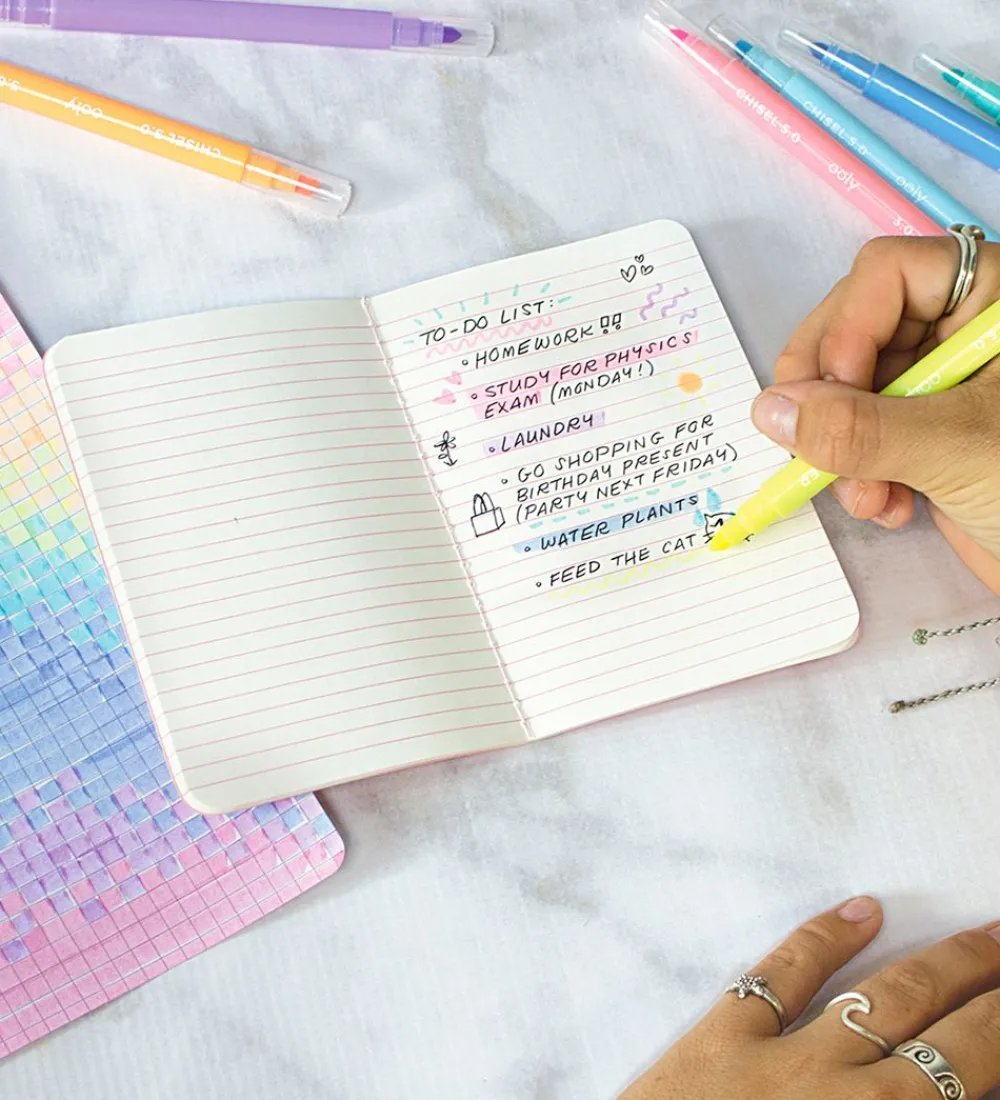 5.0 ooly CHISEL 5.0
CHISEL 5.0 ooly 5.0
CHISEL 5.0 ooly
TO-DO LIST:
• HOMEWORK !!
• STUDY FOR PHYSICS
EXAM (MONDAY!)
• LAUNDRY
• GO SHOPPING FOR
BIRTHDAY PRESENT
(PARTY NEXT FRIDAY)
• WATER PLANTS
• FEED THE CAT